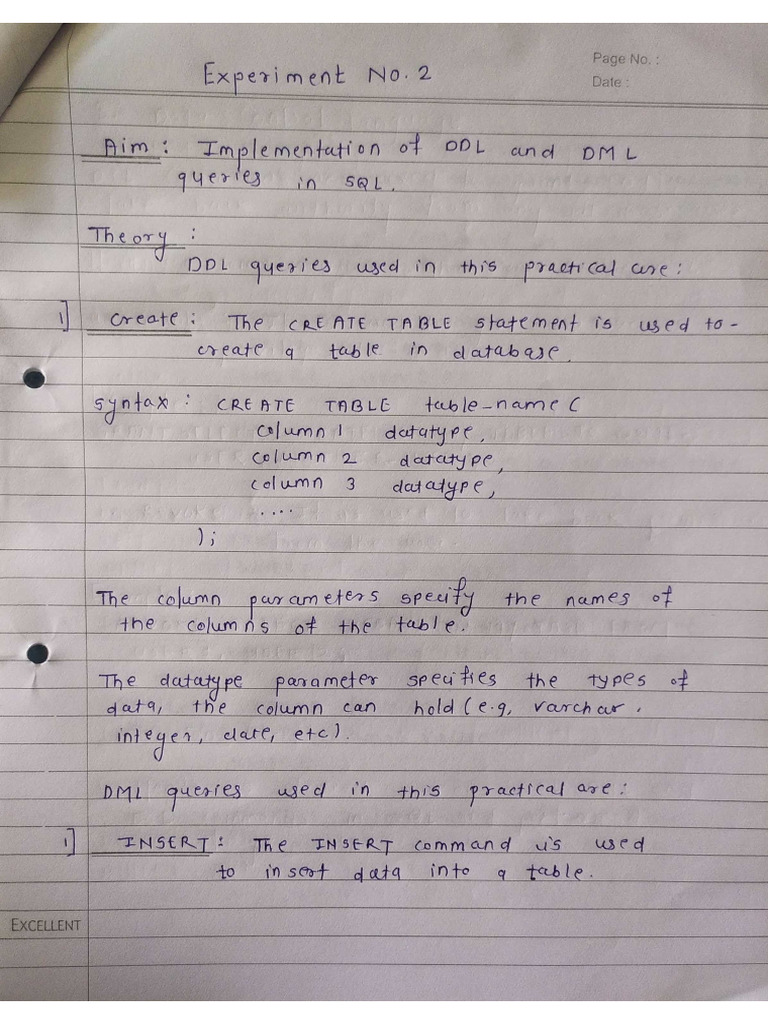 Page No. :
Experiment No. 2
Date :
Aim : Implementation of DDL and DML
queries in SQL.
Theory :
DDL queries used in this practical are :
1] Create : The CREATE TABLE statement is used to -
create a table in database.
syntax : CREATE TABLE table-name (
column 1 datatype,
column 2 datatype,
column 3 datatype,
....
);
The column parameters specify the names of
the columns of the table.
The datatype parameter specifies the types of
data, the column can hold (e.g, varchar,
integer, date, etc).
DML queries used in this practical are :
1] INSERT : The INSERT command is used
to insert data into a table.
EXCELLENT